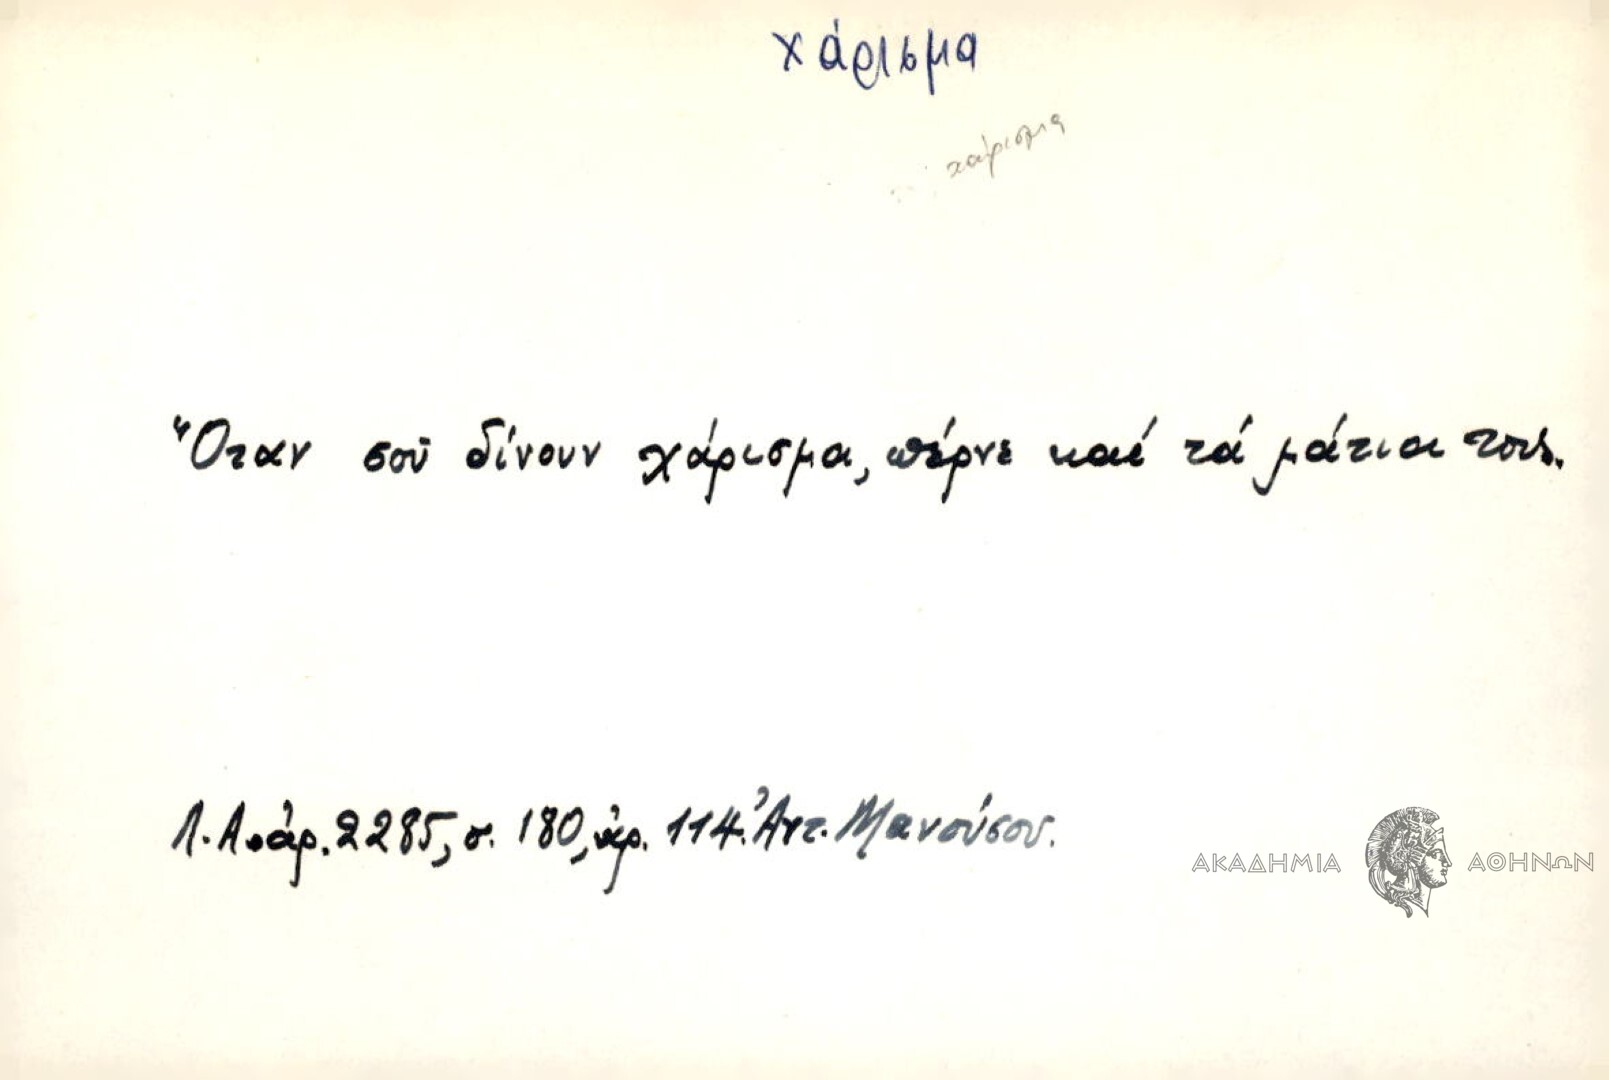 χάρισμα
χάρισμα
Ὅταν σοῦ δίνουν χάρισμα, πέρνε καί τά μάτια τους.
Λ.Α. ἀρ. 2285, σ. 180, ἀρ. 114. Ἀντ. Μανούσου.
ΑΚΑΔΗΜΙΑ ΑΘΗΝΩΝ